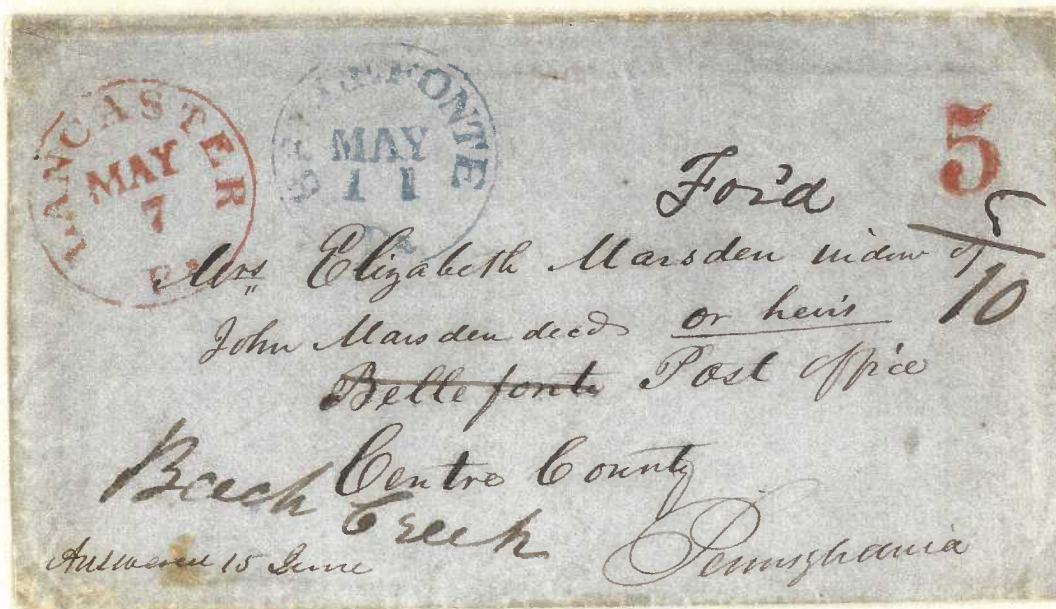 LANCASTER
MAY
7
PA
BELLEFONTE
MAY
11
PA
5
For'd
5
10
Mrs Elizabeth Marsden widow of
John Marsden decd or heirs
Bellefonte Post Office
Centre County
Beech Creek
Pennsylvania
Answered 15 June